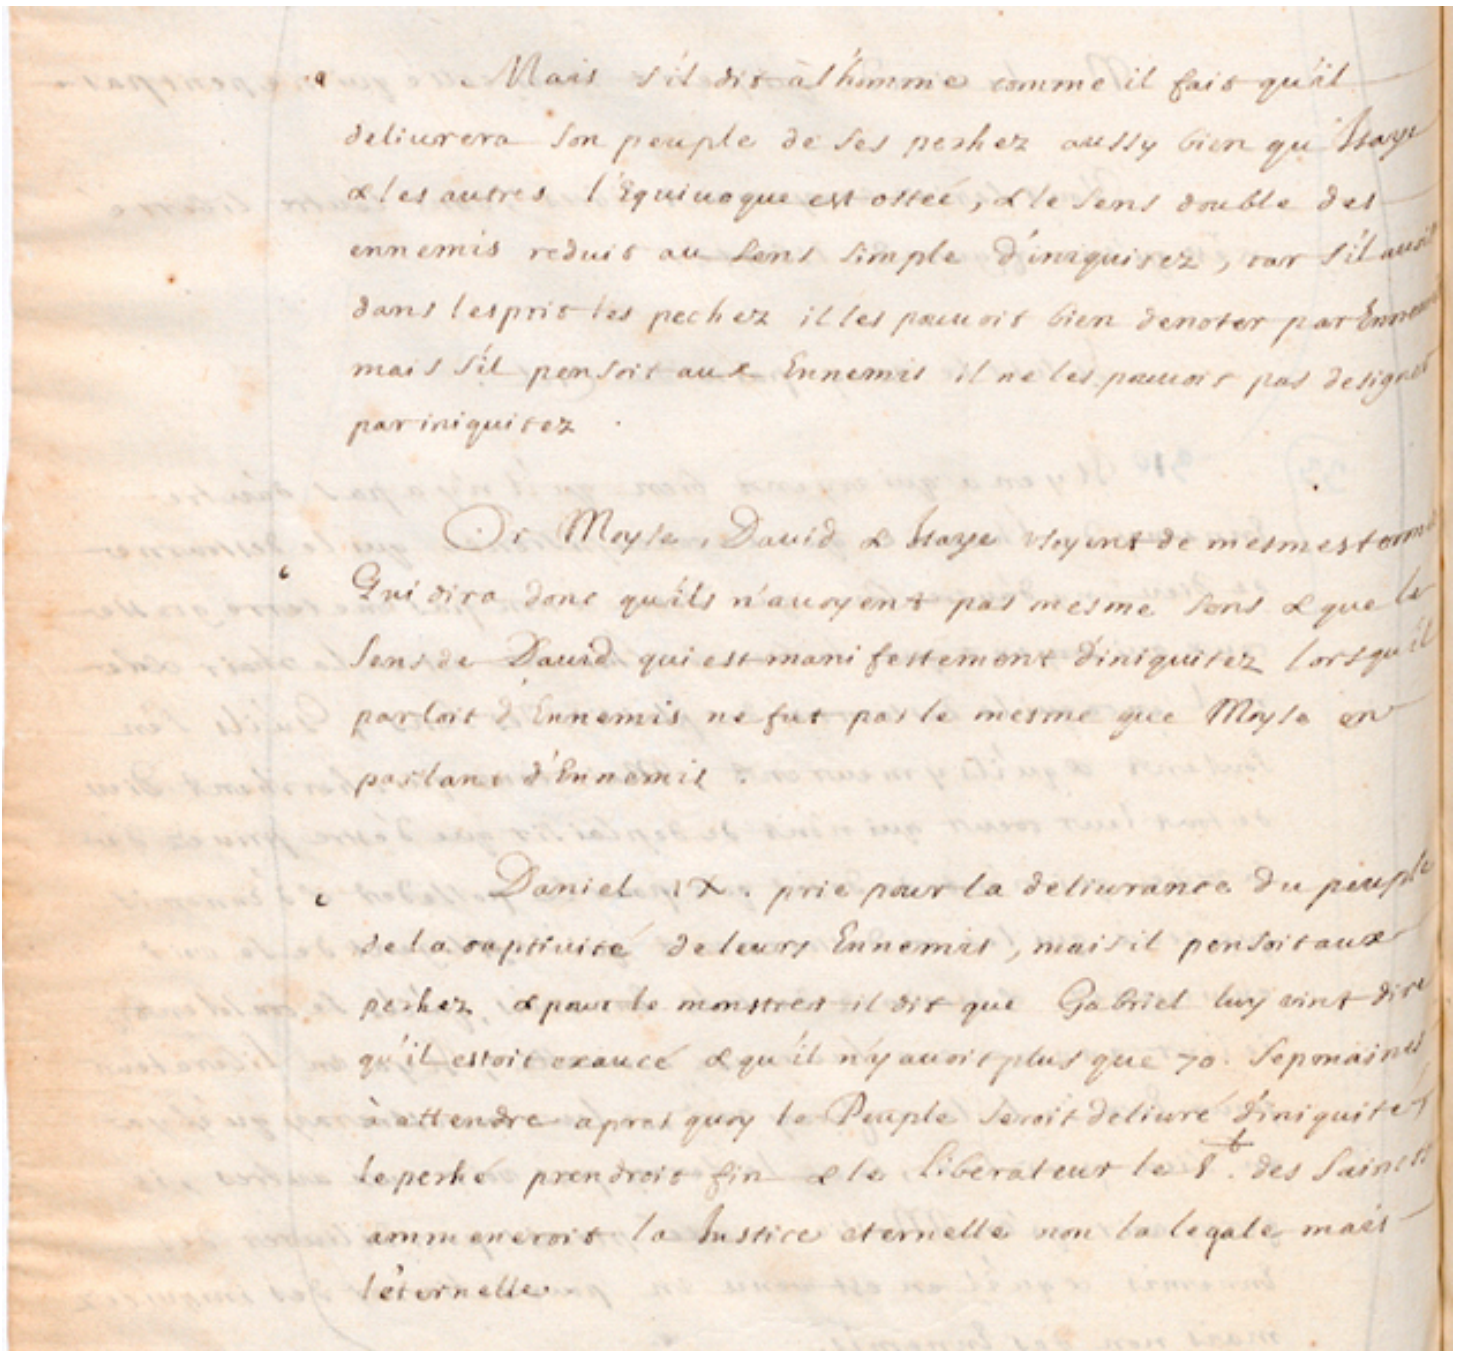 Mais s'il dit à l'homme comme il fait qu'il
deliurera son peuple de ses pechez aussy bien qu'Isaye
& les autres l'Equiuoque est ostée, & le sens double des
ennemis reduit au sens simple d'iniquitez, car s'il auoit
dans lesprit les pechez il les pouuoit bien denoter par Ennemis
mais s'il pensoit aux Ennemis il ne les pouuoit pas designer
par iniquitez .
Or Moyse, Dauid & Isaye vsoyent de mesmes termes
Qui dira donc qu'ils n'auoyent pas mesme sens & que le
sens de Dauid qui est manifestement d'iniquitez lorsqu'il
parloit d'Ennemis ne fut pas le mesme que Moyse en
parlant d'Ennemis .
Daniel IX. prie pour la deliurance du peuple
de la captiuité de leurs Ennemis, mais il pensoit aux
pechez & pour le monstrer il dit que Gabriel luy vint dire
qu'il estoit exaucé & qu'il n'y auoit plus que 70. sepmaines
à attendre apres quoy le Peuple seroit deliuré d'iniquitez
le peché prendroit fin & le liberateur le St. des Saincts
ammeneroit la Iustice eternelle non la legale mais
l'éternelle